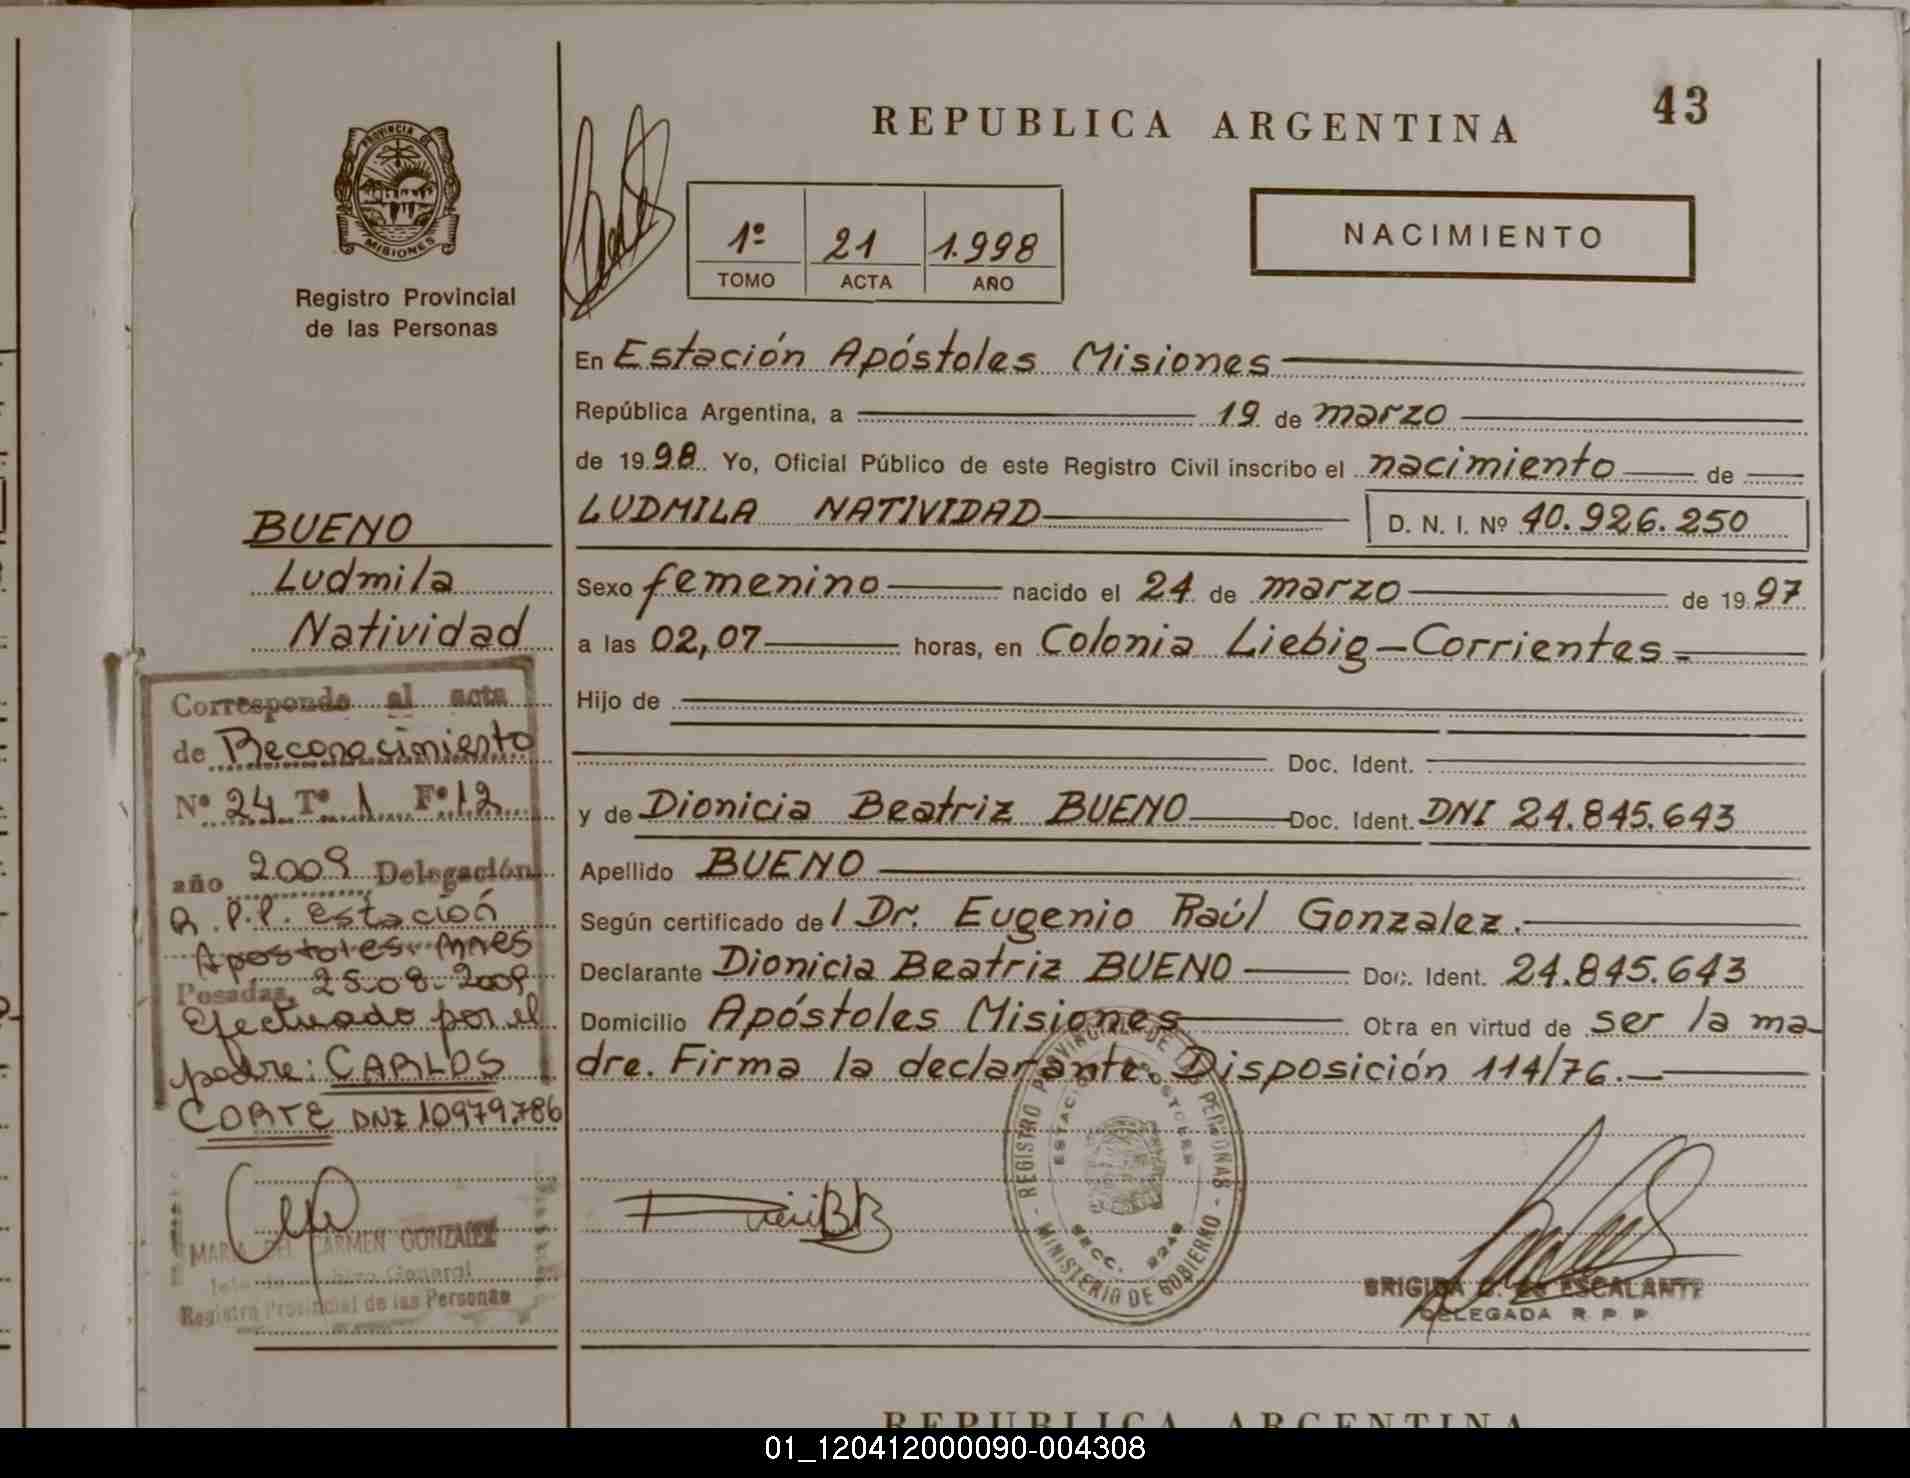 43
REPUBLICA ARGENTINA
PROVINCIA DE
MISIONES
Registro Provincial
de las Personas
1º 21 1.998
TOMO ACTA AÑO
NACIMIENTO
En Estación Apóstoles Misiones
República Argentina, a 19 de marzo
de 19 98. Yo, Oficial Público de este Registro Civil inscribo el nacimiento de
LUDMILA NATIVIDAD
D. N. I. Nº 40.926.250
Sexo femenino nacido el 24 de marzo de 19 97
a las 02,07 horas, en Colonia Liebig-Corrientes-
Hijo de
Doc. Ident.
y de Dionicia Beatriz BUENO Doc. Ident. DNI 24.845.643
Apellido BUENO
Según certificado del Dr. Eugenio Raúl Gonzalez.
Declarante Dionicia Beatriz BUENO Doc. Ident. 24.845.643
Domicilio Apóstoles Misiones Obra en virtud de ser la ma
dre. Firma la declarante. Disposición 114/76.-
BUENO
Ludmila
Natividad
Corresponde al acta
de Reconocimiento
Nº 24 Tº 1 Fº 12
año 2009 Delegación
R.P.P. Estación
Apostoles. Mnes
Posadas, 25-08-2009
Efectuado por el
padre: CARLOS
CORTE DNI 10979.786
MARIA DEL CARMEN GONZALEZ
General
Registro Provincial de las Personas
REGISTRO PROVINCIAL DE LAS PERSONAS - MINISTERIO DE GOBIERNO -
ESTACION APOSTOLES
SECC. 2248
BRIGIDA G. de ESCALANTE
DELEGADA R P P
REPUBLICA ARGENTINA
01_120412000090-004308